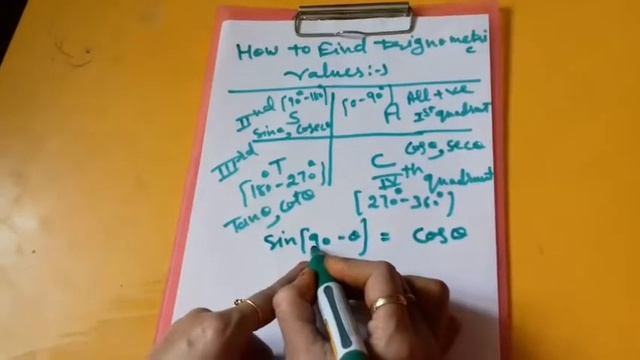 How to Find trignometric
values:-
IInd [90°-180°]
S
sinθ, cosecθ
[0-90°] All +ve
A Ist quadrant
IIIrd
T
[180°-270°]
Tanθ, cotθ
cosθ, secθ
C
IVth quadrant
[270°-360°]
sin[90-θ] = cosθ